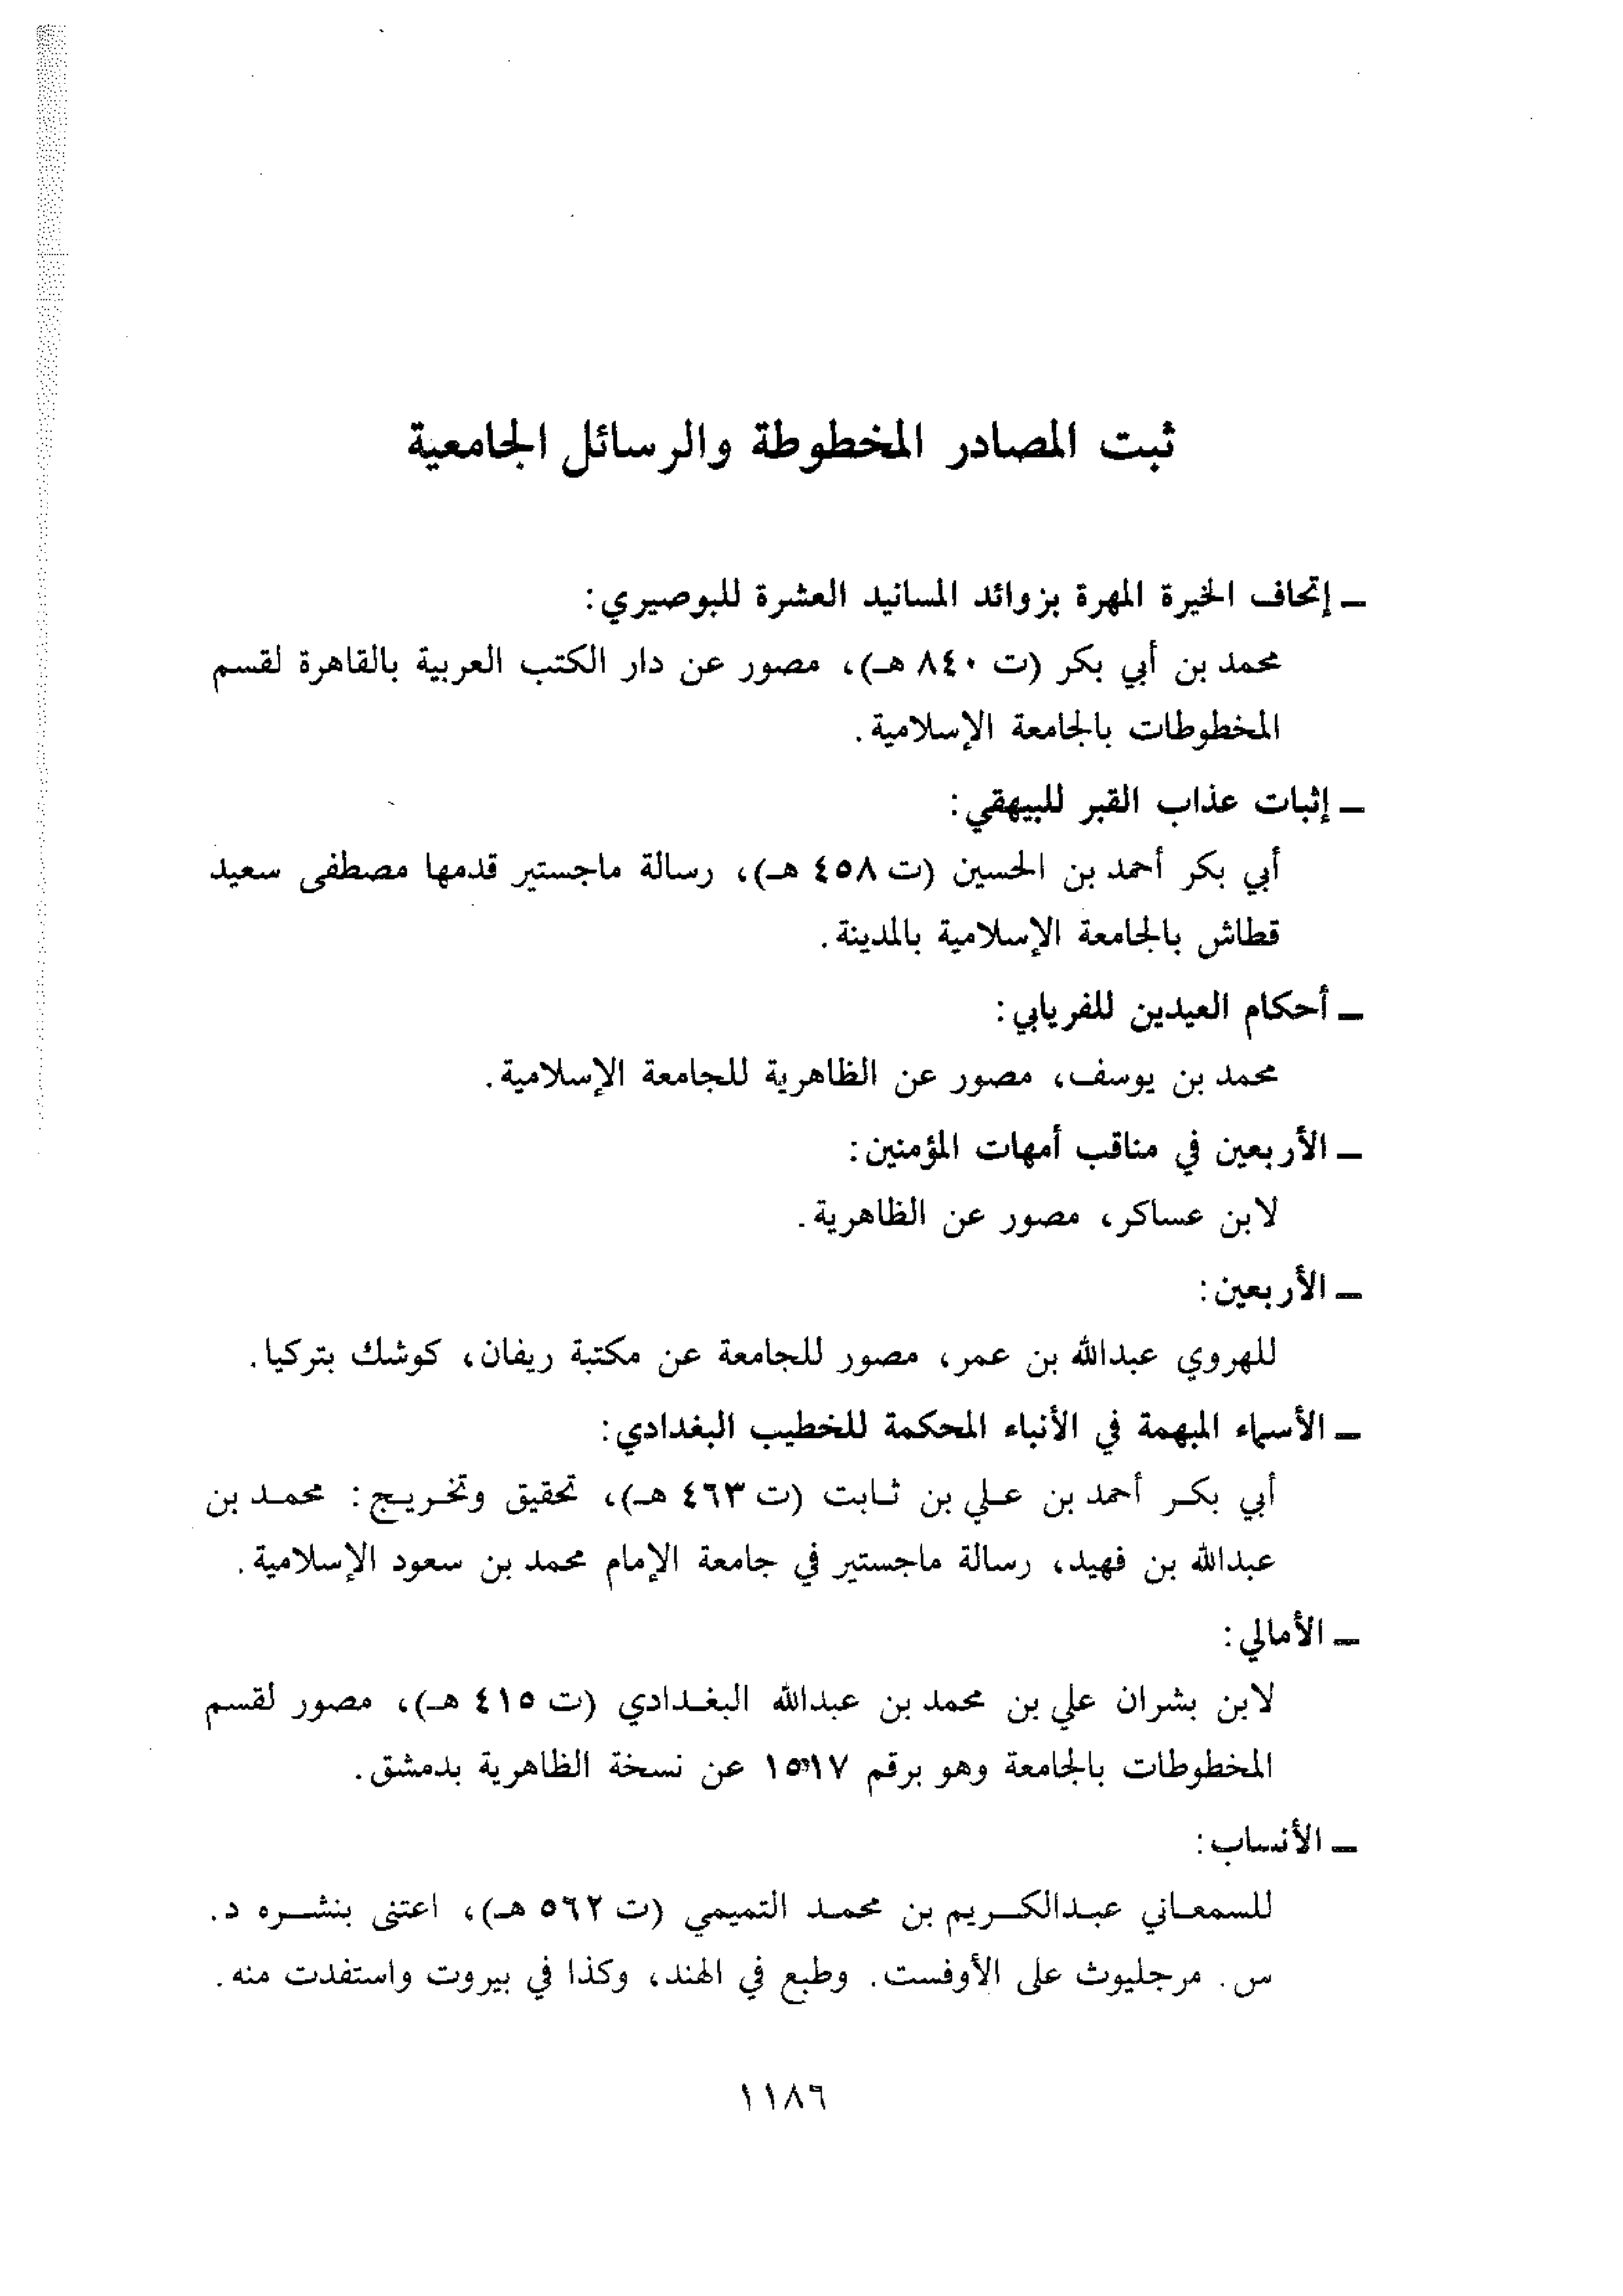 ثبت المصادر المخطوطة والرسائل الجامعية
ـ إتحاف الخيرة المهرة بزوائد المسانيد العشرة للبوصيري:
محمد بن أبي بكر (ت ٨٤٠ هـ)، مصور عن دار الكتب العربية بالقاهرة لقسم
المخطوطات بالجامعة الإسلامية.
ـ إثبات عذاب القبر للبيهقي:
أبي بكر أحمد بن الحسين (ت ٤٥٨ هـ)، رسالة ماجستير قدمها مصطفى سعيد
قطاش بالجامعة الإسلامية بالمدينة.
ـ أحكام العيدين للفريابي:
محمد بن يوسف، مصور عن الظاهرية للجامعة الإسلامية.
ـ الأربعين في مناقب أمهات المؤمنين:
لابن عساكر، مصور عن الظاهرية.
ـ الأربعين:
للهروي عبدالله بن عمر، مصور للجامعة عن مكتبة ريفان، كوشك بتركيا.
ـ الأسماء المبهمة في الأنباء المحكمة للخطيب البغدادي:
أبي بكر أحمد بن علي بن ثابت (ت ٤٦٣ هـ)، تحقيق وتخريج: محمد بن
عبدالله بن فهيد، رسالة ماجستير في جامعة الإمام محمد بن سعود الإسلامية.
ـ الأمالي:
لابن بشران علي بن محمد بن عبدالله البغدادي (ت ٤١٥ هـ)، مصور لقسم
المخطوطات بالجامعة وهو برقم ١٥١٧ عن نسخة الظاهرية بدمشق.
ـ الأنساب:
للسمعاني عبدالكريم بن محمد التميمي (ت ٥٦٢ هـ)، اعتنى بنشره د.
س. مرجليوث على الأوفست. وطبع في الهند، وكذا في بيروت واستفدت منه.
١١٨٦